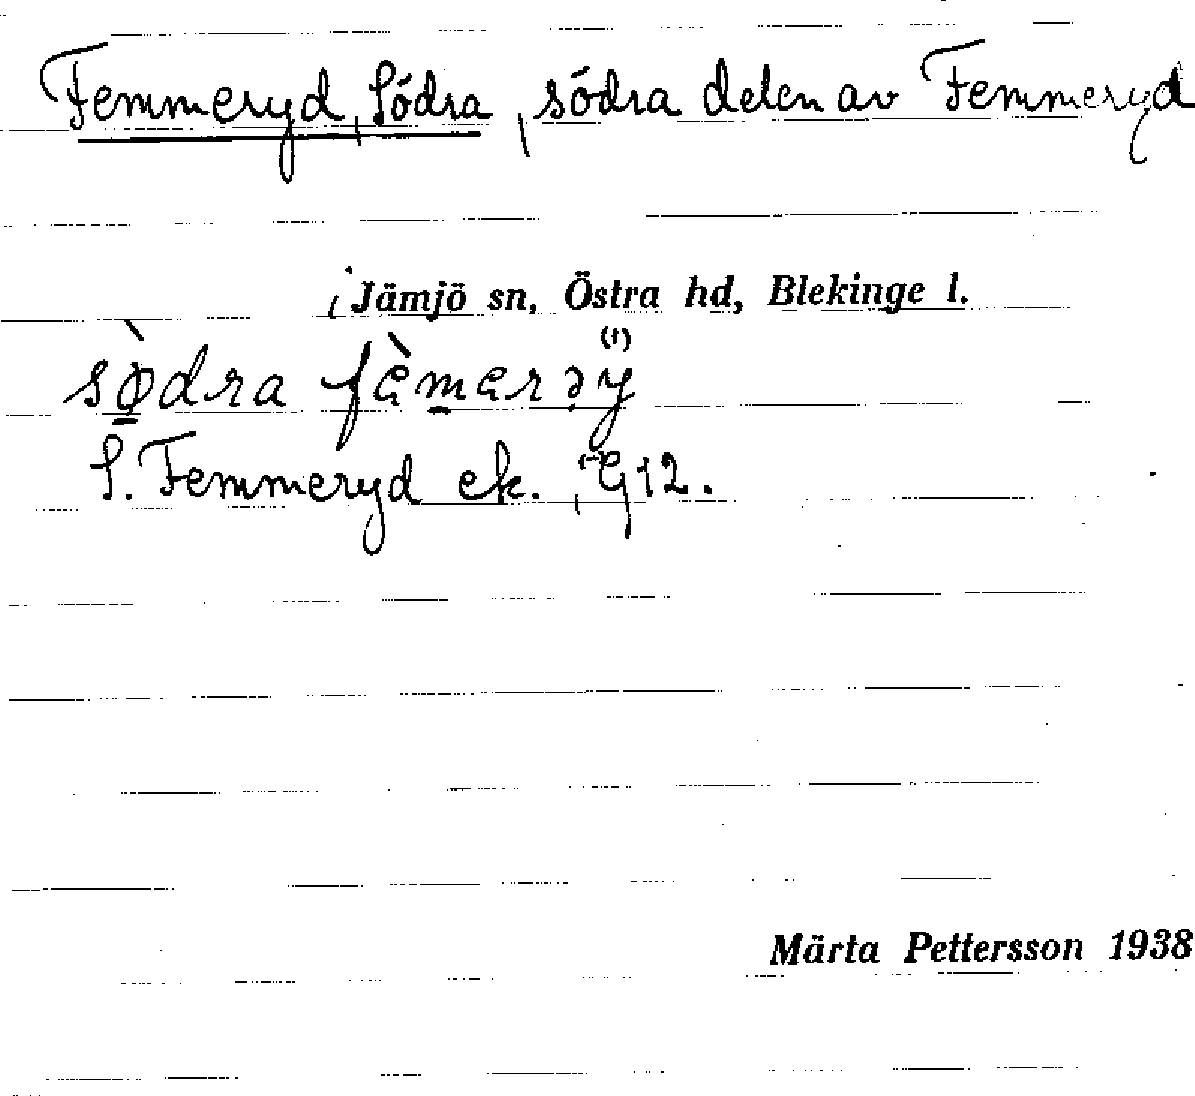 Femmeryd, Södra, södra delen av Femmeryd
i Jämjö sn, Östra hd, Blekinge l.
södra
S. Femmeryd ek. G12.
Märta Pettersson 1938